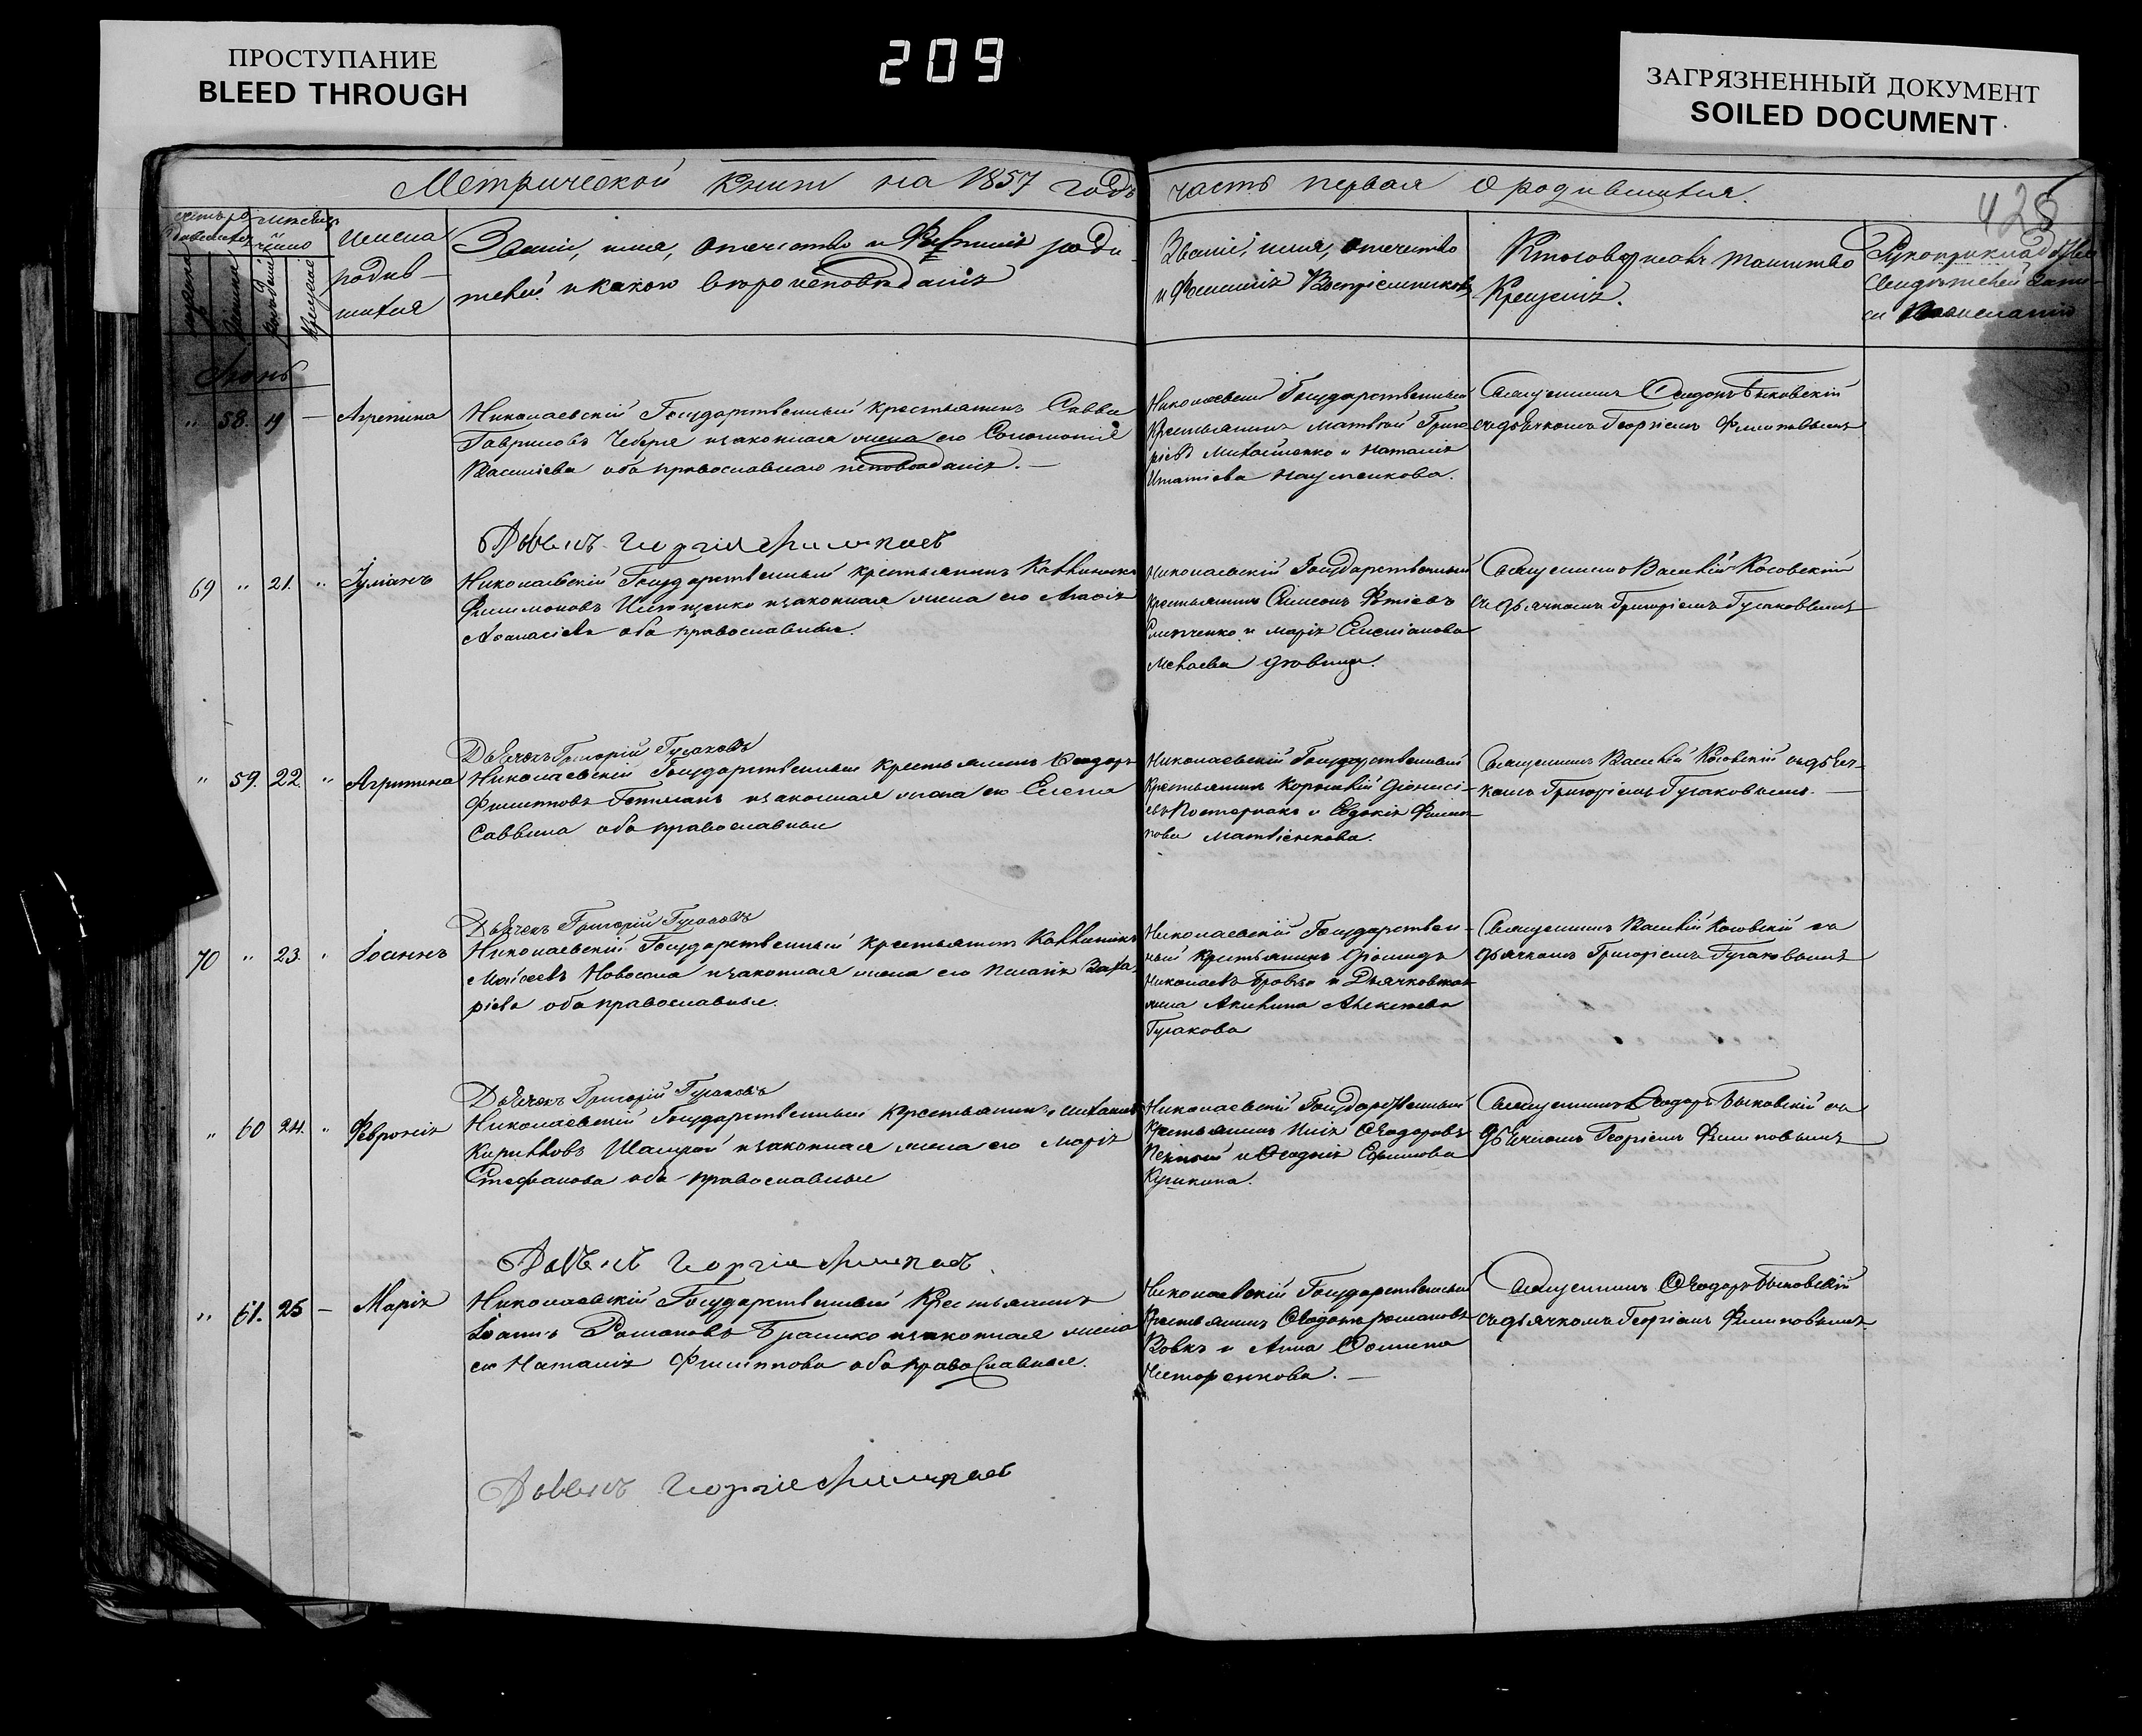 ПРОСТУПАНИЕ
BLEED THROUGH
209
ЗАГРЯЗНЕННЫЙ ДОКУМЕНТ
SOILED DOCUMENT
Метрической книги на 1857 годъ часть первая о родившихся.
425
Имена
родив-
шихся
Званіе, имя, отечество и фамилія роди-
телей и какого вероисповеданія
Званіе, имя, отечество
и Фамилія Воспріемниковъ
Кто совершалъ таинство
Крещенія.
Рукоприкладство
свидетелей записи
Іюнь
" 58. 19 — Агрепина
Николаевскій Государственный крестьянинъ Савва
Гавриловъ Чебера и законная жена его Соломонія
Василіева оба православнаго исповеданія. —
Николаевскій Государственный
Крестьянинъ Матвей Григо-
ріевъ Михайленко и Наталія
Игнатіева Науменкова.
Священникъ Феодоръ Быковскій
съ дьячкомъ Георгіемъ Филиповымъ
Дьячекъ Георгій Филиповъ
69 " 21. " Іуліанъ
Николаевскій Государственный крестьянинъ Каллиникъ
Филимоновъ и законная жена его Агафія
Афанасіева оба православные.
Николаевскій Государственный
крестьянинъ Симеонъ Фотіевъ
и Марія Емеліанова
девица.
Священникъ Василій Косовскій
съ дьячкомъ Григоріемъ Гусаковымъ
Дьячекъ Григорій Гусаковъ
" 59. 22. " Агрипина
Николаевскій Государственный крестьянинъ Феодоръ
Филипповъ Гетманъ и законная жена его Елена
Саввина оба православные
Николаевскій Государственный
Крестьянинъ Корнилій Діонисі-
евъ Пастернакъ и Евдокія Филип-
пова Матвіенкова.
Священникъ Василій Косовскій съ дьяч-
комъ Григоріемъ Гусаковымъ. —
Дьячекъ Григорій Гусаковъ
70 " 23. " Іоаннъ
Николаевскій Государственный крестьянинъ Каллиникъ
Моисеевъ Новохата и законная жена его Пелагія Заха-
ріева оба православные.
Николаевскій Государствен-
ный крестьянинъ Діомидъ
Николаевъ и Дьячковская
жена Акилина Алексеева
Гусакова
Священникъ Василій Косовскій съ
дьячкомъ Григоріемъ Гусаковымъ
Дьячекъ Григорій Гусаковъ
" 60 24. " Февронія
Николаевскій Государственный крестьянинъ Михаилъ
Кирилловъ Шамрай и законная жена его Марія
Стефанова оба православные
Николаевскій Государственный
Крестьянинъ Илія Феодоровъ
и Феодосія Ефимова
Священникъ Феодоръ Быковскій съ
дьячкомъ Георгіемъ Филиповымъ
Дьячекъ Георгій Филиповъ
" 61. 25 — Марія
Николаевскій Государственный Крестьянинъ
Іоаннъ Романовъ и законная жена
его Наталія Филиппова оба православные.
Николаевскій Государственный
Крестьянинъ Феодотъ Романовъ
Вовкъ и Анна Фомина
Нестеренкова. —
Священникъ Феодоръ Быковскій
съ дьячкомъ Георгіемъ Филиповымъ.
Дьячекъ Георгій Филиповъ